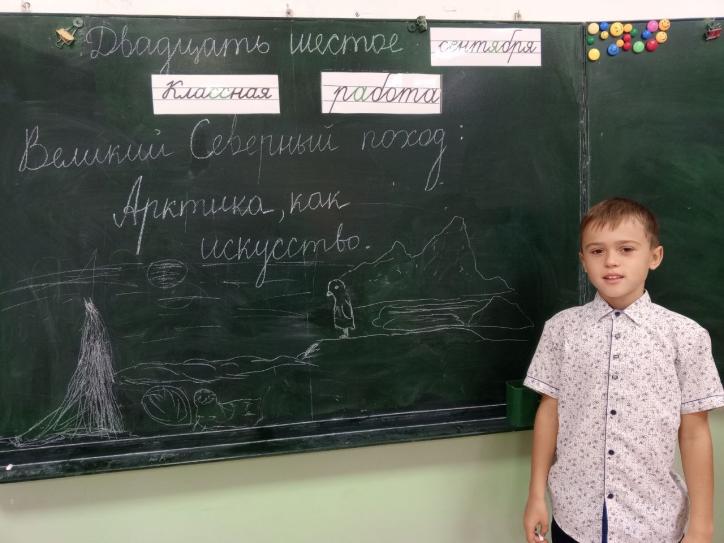 Двадцать шестое сентября
Классная работа
Великий Северный поход:
Арктика, как
искусство.